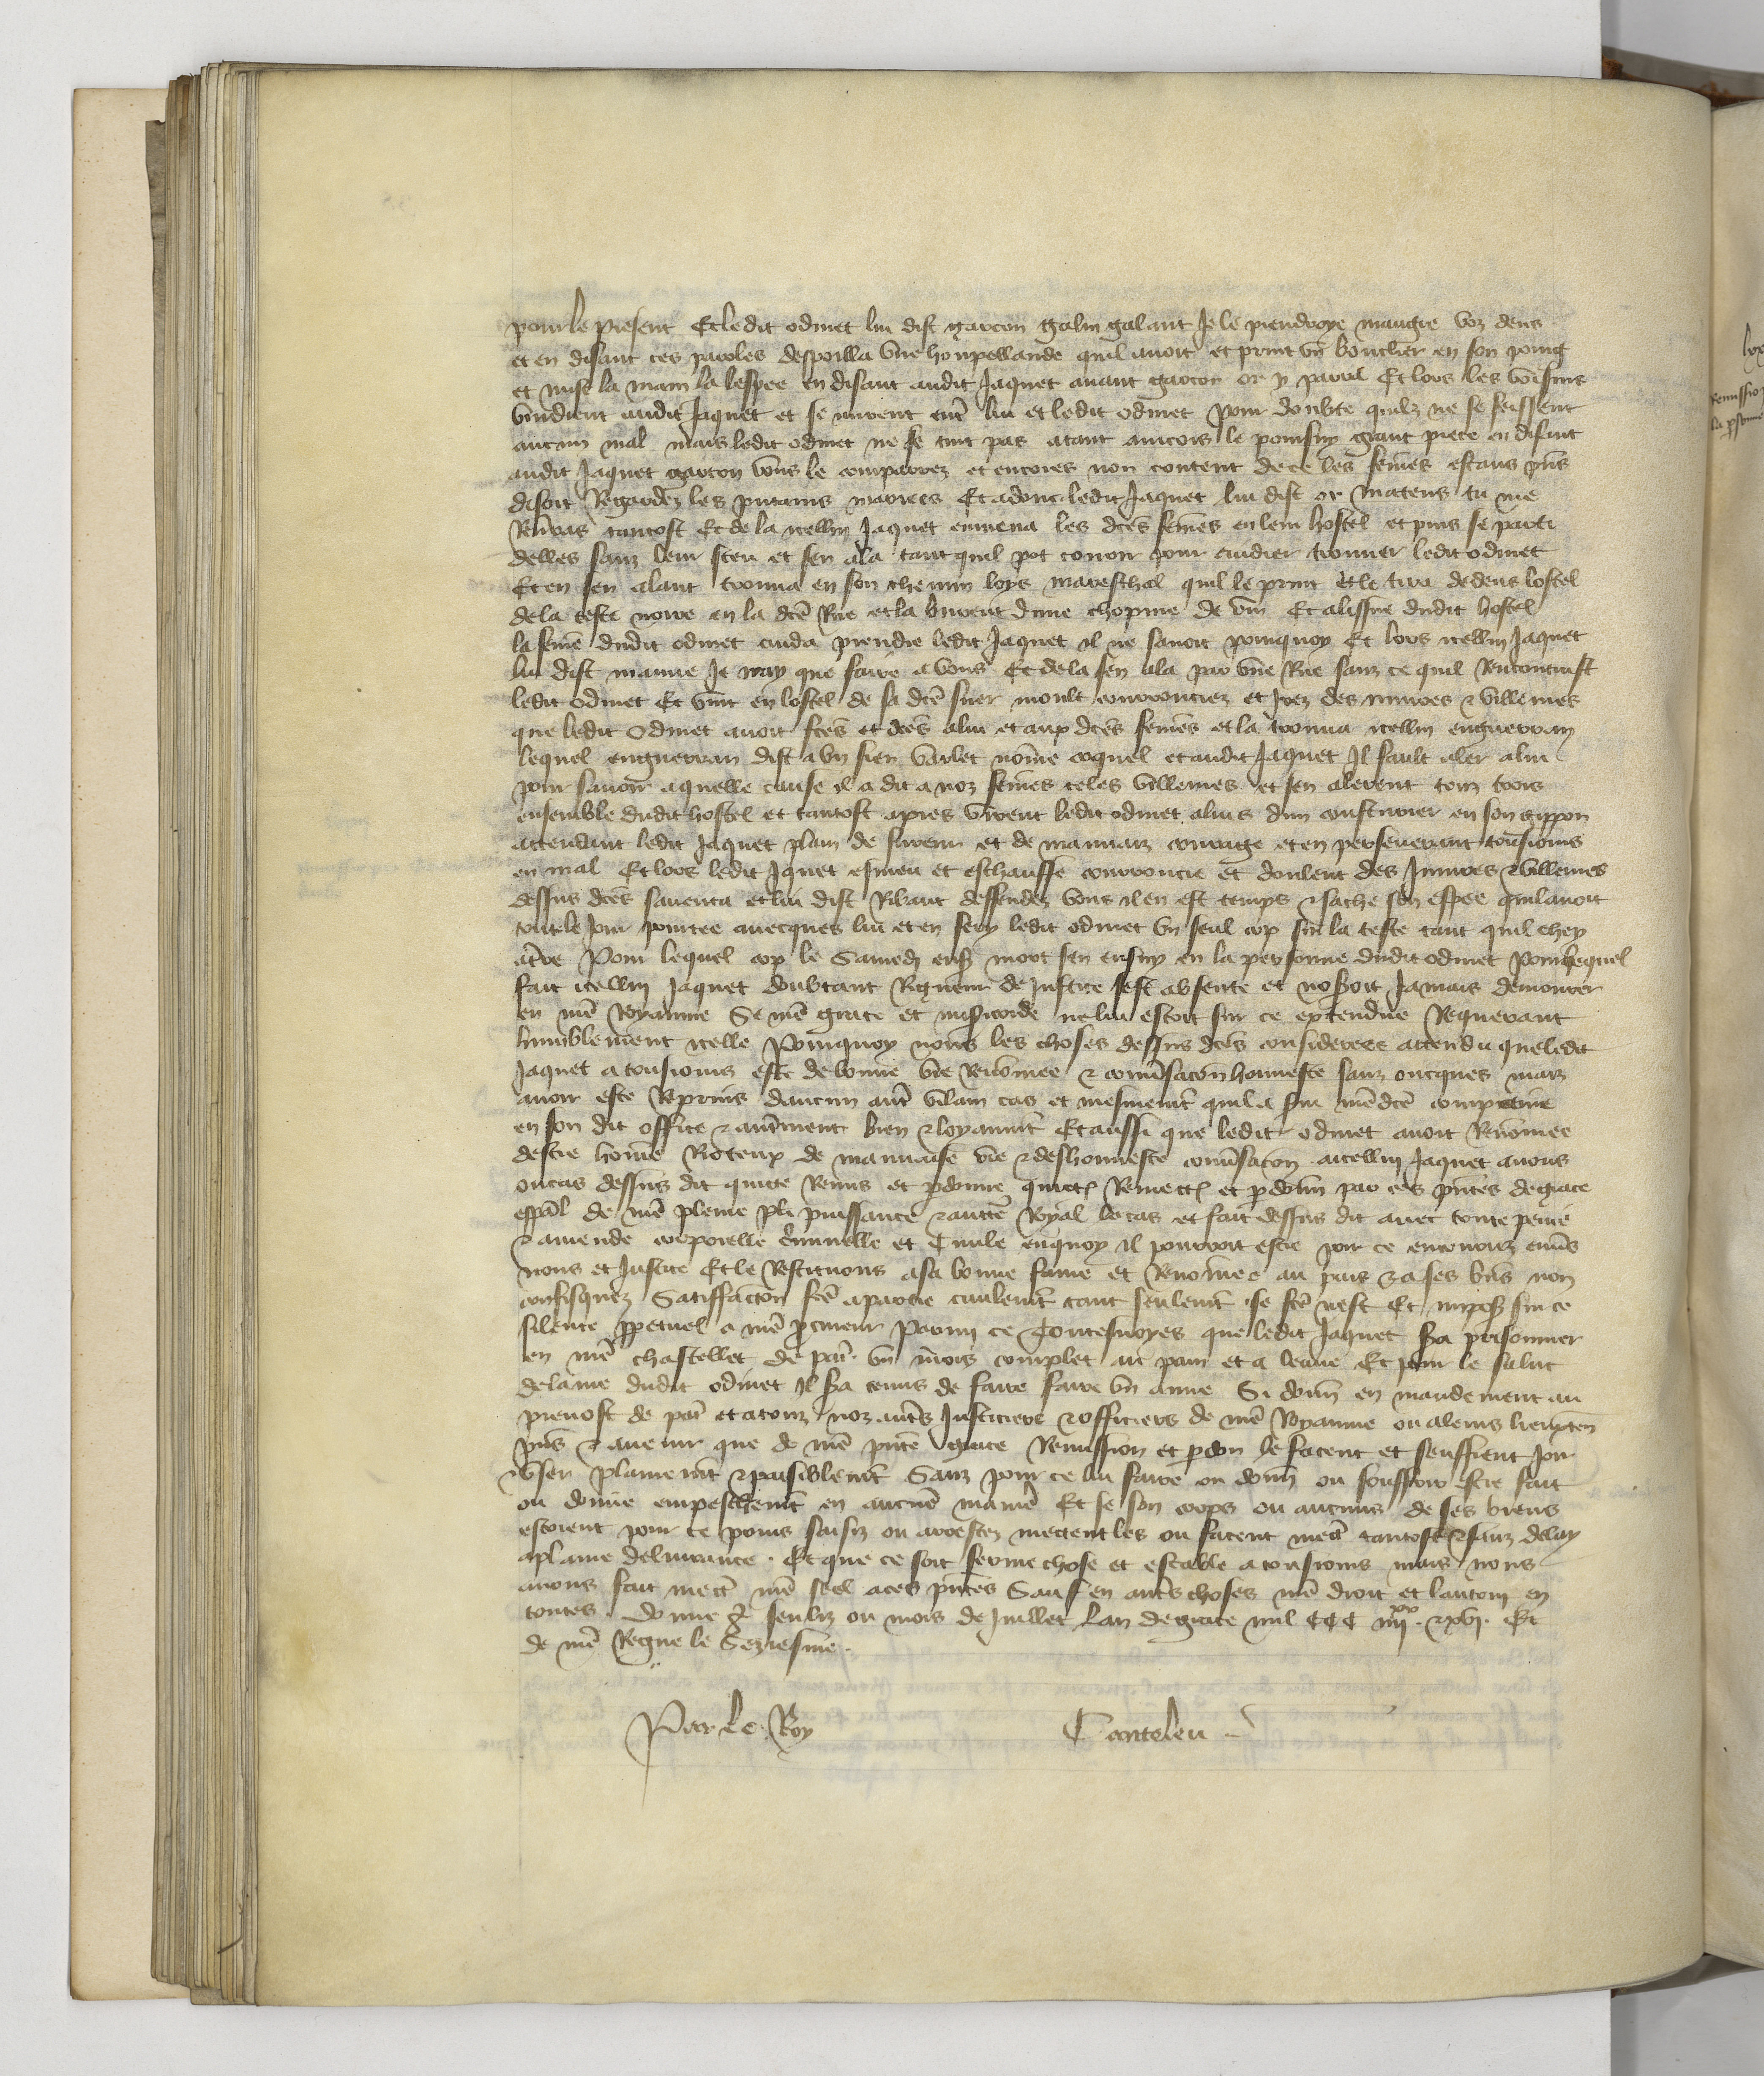 pour le present Et ledit odinet lui dist garcon galin galant Je le prendroye maugre voz dens
et en disant ces paroles despoilla vne houpellande quil auoit et print vn bouclier en son poing
et mist la main la lespee en disant audit Jaquet auant garcon or y parra Et lors les voisins
vindrent audit Jaquet et se mirent entre lui et ledit odinet pour doubte quilz ne se feissent
aucun mal mais ledit odinet ne se tint pas atant aincois le poursuy grant piece en disant
audit Jaquet garcon vous le comparrez et encores non content de ce les femes estans pns
disoit Regardez les putains Et adonc ledit Jaquet lui dist or matens tu me
Rauras tantost Et de la icellui Jaquet enmena les dces femes en leur hostel et puis se parti
delles sanz leur sceu et sen ala tant quil pot courir pour cuidier trouuer ledit odinet
Et en sen alant trouua en son chemin loys mareschal quil le print et le tira dedens lostel
de la teste noire en la dce Rue et la burent dune chopine de vin Et alissue dudit hostel
la feme dudit odinet cuida prendre ledit Jaquet il ne sauoit pourquoy Et lors icellui Jaquet
lui dist mamie Je nay que faire a vous Et de la sen ala par vne Rue sanz ce quil Rencontrast
ledit odinet Et vint en lostel de sa dce suer moult courrouciez et yrez des iniures & villenies
que ledit odinet auoit fces et dces alui et aux dces femes et la trouua icellui enguerran
lequel enguerran dist a vn sien varlet nome coquel et audit Jaquet Il fault aler alui
pour sauoir aquelle cause il a dit a noz femes teles villenies et sen alerent touz trois
ensemble dudit hostel et tantost apres virent ledit odinet aluis dun cousturier en son gippon
attendant ledit Jaquet plain de fureur et de mauuaiz courage et en perseuerant tousiours
en mal Et lors ledit Jquet esmeu et eschauffe courroucie et doulent des Iniures & villenies
dessus dces sauenca et lui dist Ribaut deffendez vous il en est temps & sacha son espee quil auoit
tout le jour portee auecques lui et en fery ledit odinet vn seul cop sur la teste tant quil chey
atre Pour lequel cop le Samedi ens mort sen ensuy en la personne dudit odinet Pour lequel
fait icellui Jaquet doubtant Rigueur de justice sest absente et noseroit Jamais demourer
en nre Royaume Se nre grace et misericorde ne lui estoit sur ce extendue Requerant
humblement icelle Pourquoy nous les choses dessus dces considerees attendu que ledit
Jaquet a tousiours este de bonne vie Renomee & conuersacon honneste sanz oncques mais
auoir este Reprins daucun autre vilain cas et mesmement quil a nre dce
en son dit office & autrement bien & loyaument Et aussi que ledit odinet auoit Renomee
destre home Rioteux de mauuaise vie & deshonneste conuersacon aicellui Jaquet auons
oucas dessus dit quitte Remis et pdonne quictons Remectons et pdonns par ces pntes de grace
espal de nre pleine puissance & auctte Royal le cas et fait dessus dit auec toute peine
& amende corporelle criminelle et Ciuile enquoy il pourroit estre pour ce encouruz enuers
nous et Justice Et le Restituons asa bonne fame et Renomee au pais & a ses biens non
confisquez Satiffacton fce apartie ciuilemt tant seulemt se fce nest Et imposons sur ce
silence ppetuel a nre pcureur Parmi ce Toutesuoyes que ledit Jaquet sera prisonnier
en nre chastellet de paris vn mois complet au pain et a leaue Et pour le salut
de lame dudit odinet Il sera tenus de faire faire vn Si donns en mandement au
preuost de paris et atouz noz autres Justiciers & officiers de nre Royaume ou aleurs lieuxten
pns & auenir que de nre pnte grace Remission et pdon le facent et seuffrent Joir
& vser plainemt & paisiblemt Sanz pour ce lui faire ou donner ou souffrir estre fait
ou donne empeschemt en aucune maniere Et se son corps ou aucuns de ses biens
estoient pour ce prins saisiz ou arrestez mettent les ou facent mectre tantost & sanz delay
aplaine deliurance Et que ce soit ferme chose et estable a tousiours mais nous
auons fait mectre nre seel aces pntes Sauf en autres choses nre droit et lautruy en
toutes. Donne a senliz ou mois de Juillet lan de grace mil CCC iiijxx & xvj. Et
de nre Regne le Seziesme.
Par le Roy Canteleu